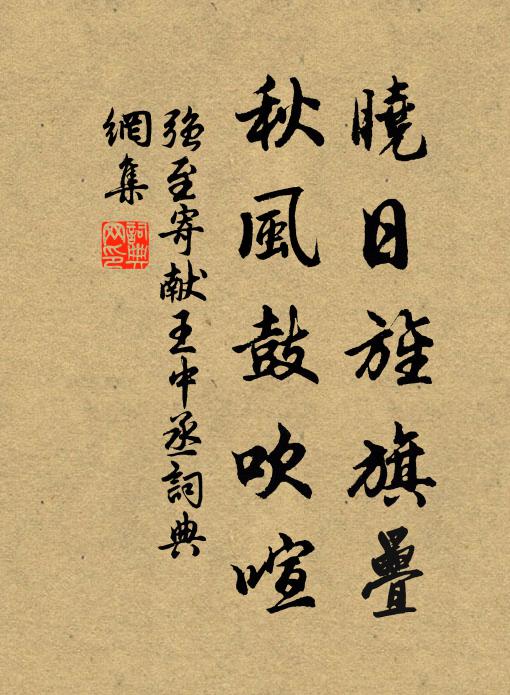 曉日旌旗疊
秋風鼓吹喧
強至寄献王中丞詞典
網集
詞典網印